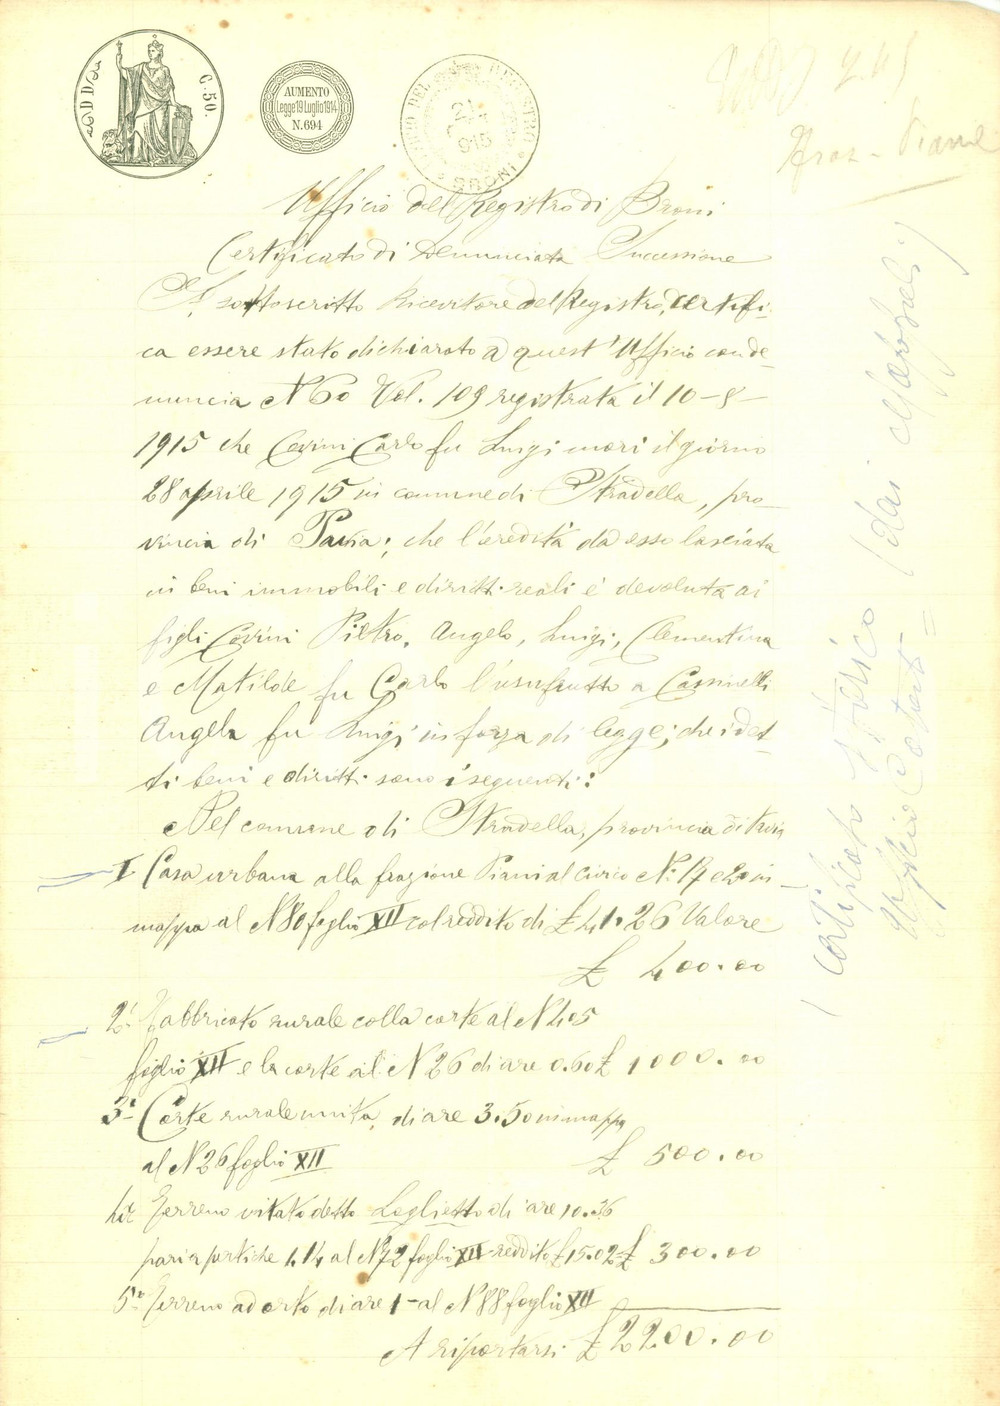 C. 50.
AUMENTO
Legge 19 Luglio 1914
N. 694
BRONI
Ufficio del Registro di Broni
Certificato di Denunciata Successione
Il sottoscritto Ricevitore del Registro, certifi-
ca essere stato dichiarato a quest'Ufficio con de-
nuncia N 60 Vol. 109 registrata il 10-8-
1915 che Covini Carlo fu Luigi morì il giorno
28 aprile 1915 in comune di Stradella, pro-
vincia di Pavia; che l'eredità da esso lasciata
in beni immobili e diritti reali è devoluta ai
figli Covini Pietro, Angelo, Luigi, Clementina
e Matilde fu Carlo l'usufrutto a Cassinelli
Angela fu Luigi in forza di legge; che i det-
ti beni e diritti sono i seguenti:
Nel comune di Stradella, provincia di Pavia
I Casa urbana alla frazione Piani al civico N. 17 e 20 in
mappa al N 80 foglio XII col reddito di £ 41.26 Valore
£ 400.00
2° Fabbricato rurale colla corte al N 405
foglio XII e la corte al N 26 di are 0.60 £ 1000.00
3° Corte rurale unita, di are 3.50 in mappa
al N 26 foglio XII £ 500.00
4° Terreno vitato detto Loglietto di are 10.36
pari a pertiche 1.14 al N 72 foglio XII reddito £ 15.02 £ 300.00
5° Terreno ad orto di are 1- al N 88 foglio XII
A riportarsi £ 2200.00
Certificato storico (dai
Ufficio Catasto